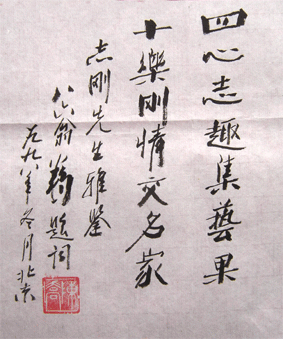 四心志趣集藝果
十樂刚情交名家
志刚先生雅鉴
翁 题词
九八年冬月北京